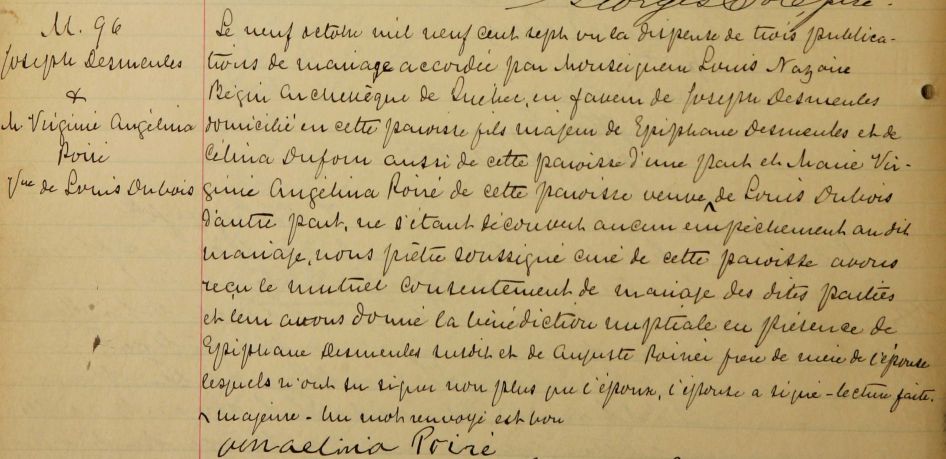 M. 96
Joseph Desmeules
&
M. Virginie Angélina
Poiré
Vve de Louis Dubois
Le neuf octobre mil neuf cent sept vu la dispense de trois publica-
tions de mariage accordée par Monseigneur Louis Nazaire
Bégin Archevêque de Québec, en faveur de Joseph Desmeules
domicilié en cette paroisse fils majeur de Epiphane Desmeules et de
Célina Dufour aussi de cette paroisse d'une part et Marie Vir-
ginie Angélina Poiré de cette paroisse veuve ^ de Louis Dubois
d'autre part, ne s'étant découvert aucun empêchement au dit
mariage, nous prêtre soussigné curé de cette paroisse avons
reçu le mutuel consentement de mariage des dites parties
et leur avons donné la bénédiction nuptiale en présence de
Epiphane Desmeules susdit et de Auguste frère de mère de l'épouse
lesquels n'ont su signer non plus que l'époux, l'épouse a signé - lecture faite.
^ majeure - Un mot renvoyé est bon
Angelina Poiré